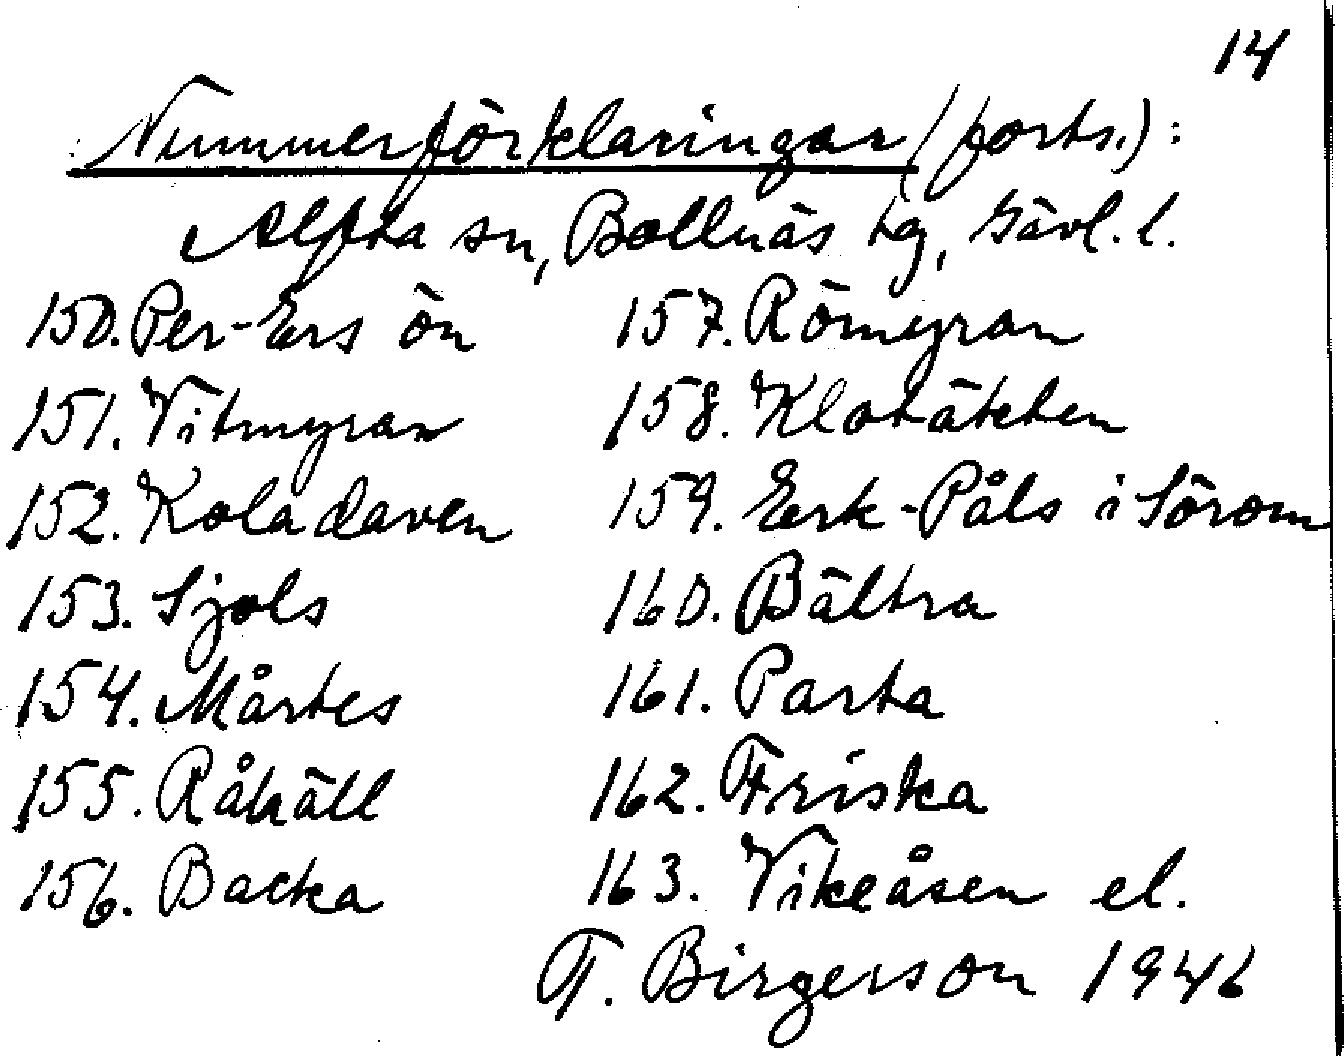 14
Nummerförklaringar (forts.):
Alfta sn, Bollnäs tg, Gävl. l.
150. Per-Ers ön
157. Römyran
151. Vitmyran
158. Klotäkten
152. Koladaven
159. Erk-Påls i Sörom
153. Sjols
160. Bältra
154. Mårtes
161. Parta
155. Råhäll
162. Friska
156. Backa
163. Vikeåsen el.
T. Birgerson 1946